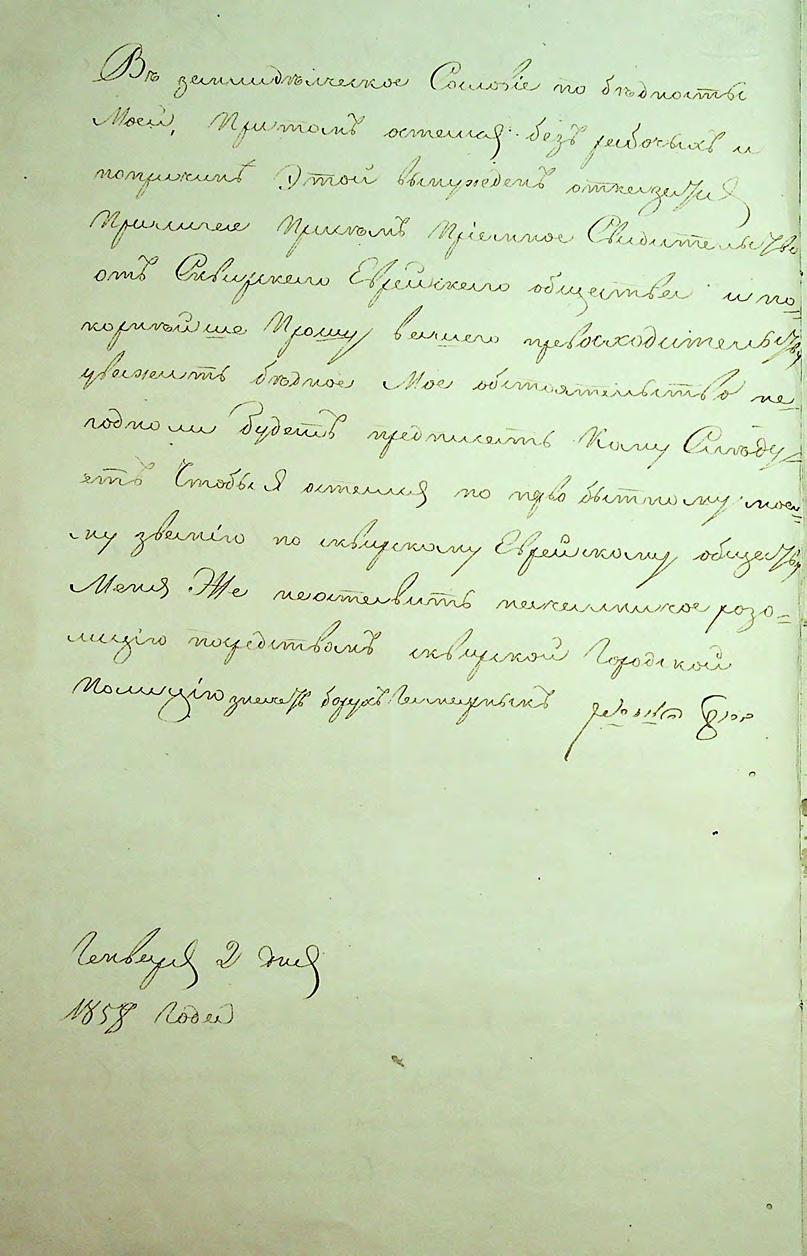 Въ земледѣлческое Сословіе по бѣдносты
Моей, Притомъ остался безъ рабочыхъ и
попричинѣ Этой вынужденъ отказатся
Прилагае При томъ Пріемное Свидительство
отъ Сквирскего Еврейскего общества и по=
корнѣйше Прошу вашего превосходительству
уважить бѣдное Мое обстоятельство не=
годноли будетъ предписать Кому Слѣду
етъ Чтобы Я остался по перво бытному мое=
му званію по сквирскому Еврейскому обществу
Меня Же неоставить накаличкое розо=
лицію посредствомъ сквирской Городской
Полицію борухъ
Генваря 2 дня
1858 Года